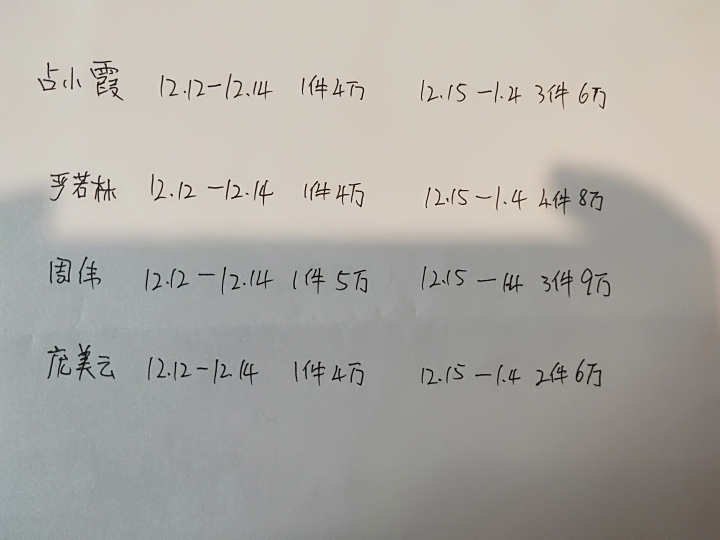 占小霞 12.12-12.14 1件4万 12.15-1.4 3件6万
严若林 12.12-12.14 1件4万 12.15-1.4 4件8万
周伟 12.12-12.14 1件5万 12.15-1.4 3件9万
庞美云 12.12-12.14 1件4万 12.15-1.4 2件6万